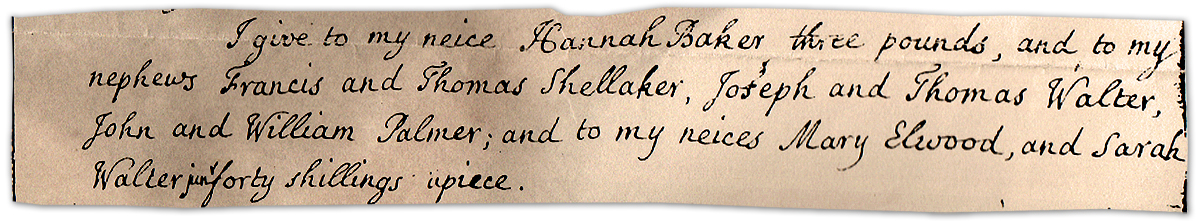 I give to my neice Hannah Baker three pounds, and to my
nephews Francis and Thomas Shellaker, Joseph and Thomas Walter,
John and William Palmer; and to my neices Mary Elwood, and Sarah
Walter junr forty shillings apiece.